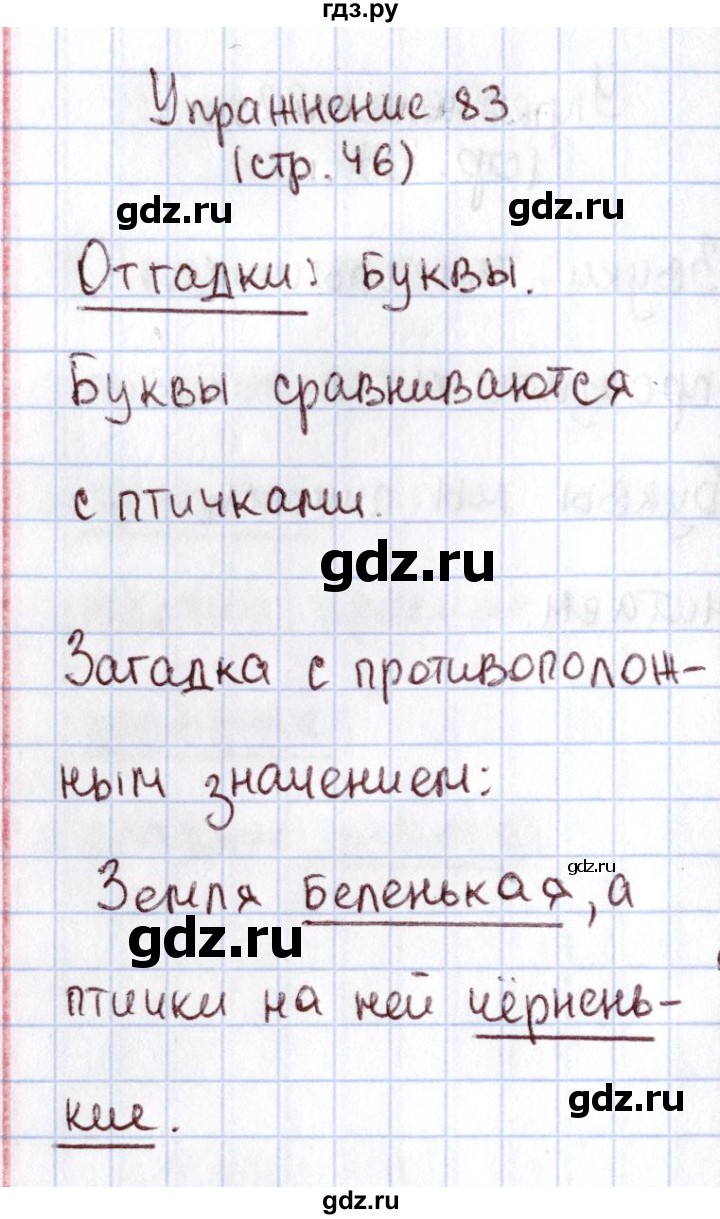 гдз.ру
Упражнение 83
(стр. 46)
gdz.ru gdz.ru
Отгадки: Буквы.
Буквы сравниваются
с птичками.
gdz.ru
Загадка с противополож-
ным значением:
gdz.ru
Земля беленькая, а
gdz.ru
птички на ней чёрнень-
gdz.ru
кие.
gdz.ru